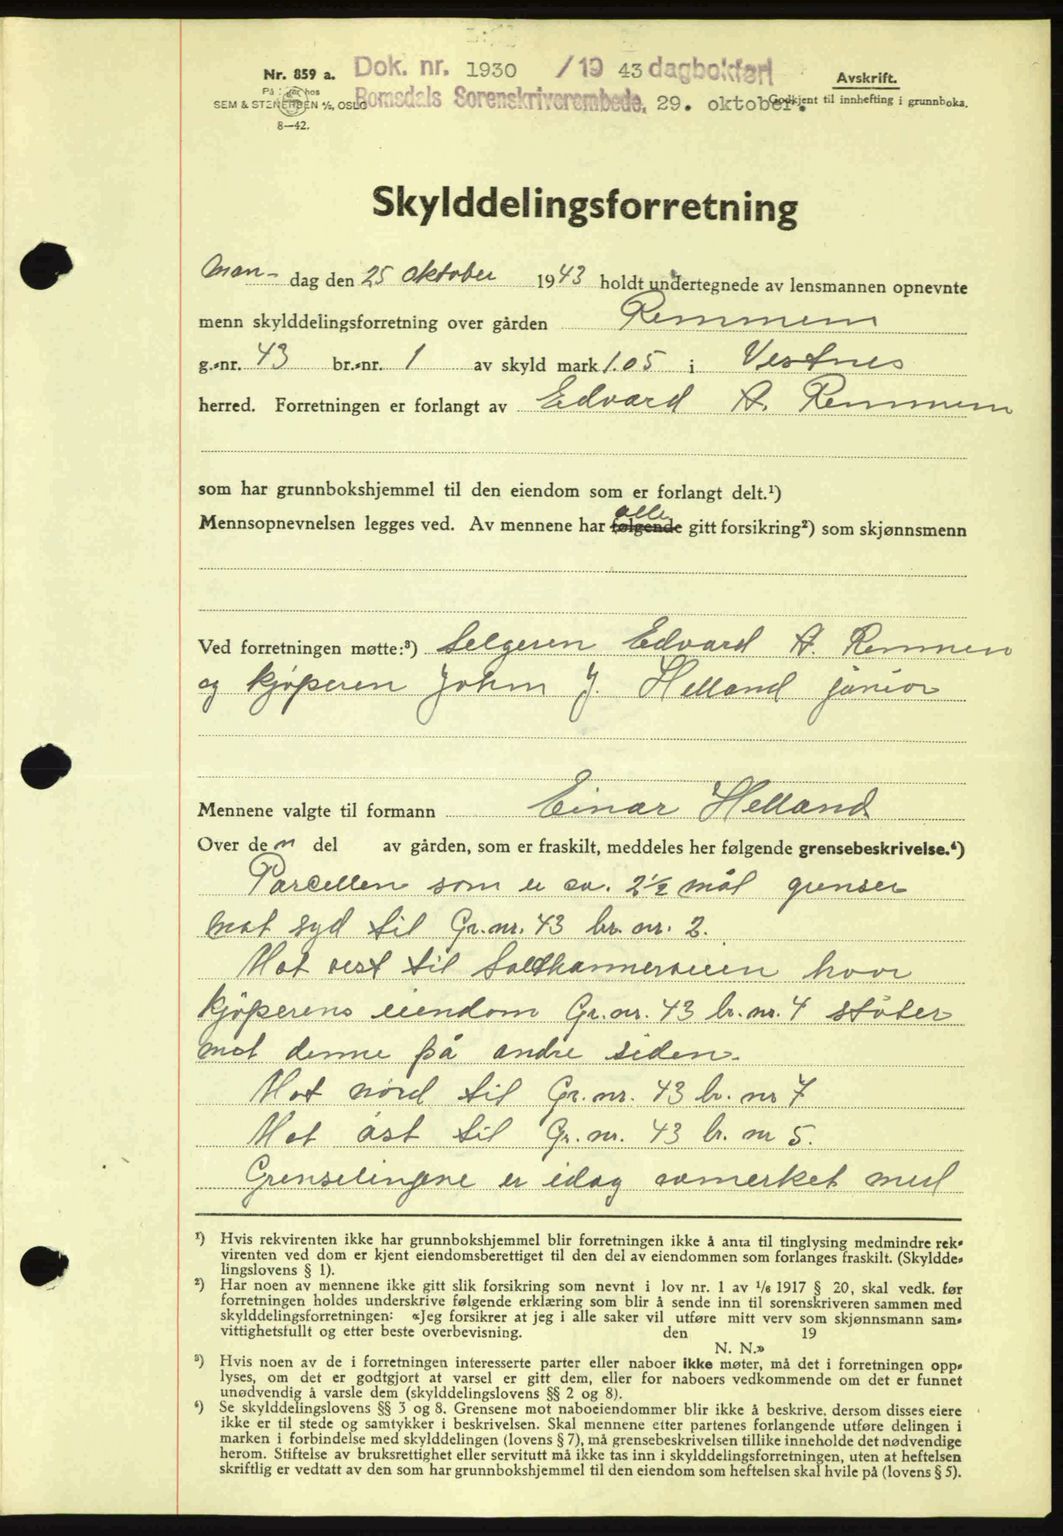 Nr. 859 a.
Dok. nr. 1930 /19 43 dagbokført
Avskrift.
SEM & STENERSEN A/S, OSLO
Romsdals Sorenskriverembede, 29. oktober.
Godkjent til innhefting i grunnboka.
8—42.
Skylddelingsforretning
Man- dag den 25 oktober 1943 holdt undertegnede av lensmannen opnevnte
menn skylddelingsforretning over gården Remmem
g.-nr. 43 br.-nr. 1 av skyld mark 1.05 i Vestnes
herred. Forretningen er forlangt av Edvard A. Remmem
som har grunnbokshjemmel til den eiendom som er forlangt delt.¹)
alle
Mennsopnevnelsen legges ved. Av mennene har følgende gitt forsikring²) som skjønnsmenn
Ved forretningen møtte:³) Selgeren Edvard A. Remmen
og kjøperen John J. Helland junior
Mennene valgte til formann Einar Helland
Over den del av gården, som er fraskilt, meddeles her følgende grensebeskrivelse.⁴)
Parcellen som er ca. 2½ mål grenser
mot syd til Gr.nr. 43 br. nr. 2.
Mot vest til hvor
kjøperens eiendom Gr.nr. 43 br.nr. 4 støter
mot denne på andre siden.
Mot nord til Gr.nr. 43 br. nr 7
Mot øst til Gr.nr. 43 br. nr 5.
Grenselinjene er idag avmerket med
¹) Hvis rekvirenten ikke har grunnbokshjemmel blir forretningen ikke å anta til tinglysing medmindre rek-
virenten ved dom er kjent eiendomsberettiget til den del av eiendommen som forlanges fraskilt. (Skyldde-
lingslovens § 1).
²) Har noen av mennene ikke gitt slik forsikring som nevnt i lov nr. 1 av 1/6 1917 § 20, skal vedk. før
forretningen holdes underskrive følgende erklæring som blir å sende inn til sorenskriveren sammen med
skylddelingsforretningen: «Jeg forsikrer at jeg i alle saker vil utføre mitt verv som skjønnsmann sam-
vittighetsfullt og etter beste overbevisning. den 19
N. N.»
³) Hvis noen av de i forretningen interesserte parter eller naboer ikke møter, må det i forretningen opp-
lyses, om det er godtgjort at varsel er gitt dem, eller for naboers vedkommende om det er funnet
unødvendig å varsle dem (skylddelingslovens §§ 2 og 8).
⁴) Se skylddelingslovens §§ 3 og 8. Grensene mot naboeiendommer blir ikke å beskrive, dersom disses eiere
ikke er til stede og samtykker i beskrivelsen. Skal mennene etter partenes forlangende utføre delingen i
marken i forbindelse med skylddelingen (lovens § 7), må grensebeskrivelsen tillike inneholde det nødvendige
herom. Stiftelse av bruksrettighet eller servitutt må ikke tas inn i skylddelingsforretningen, uten at heftelsen
skriftlig er vedtatt av den som har grunnbokshjemmel til den eiendom som heftelsen skal hvile på (lovens § 5).